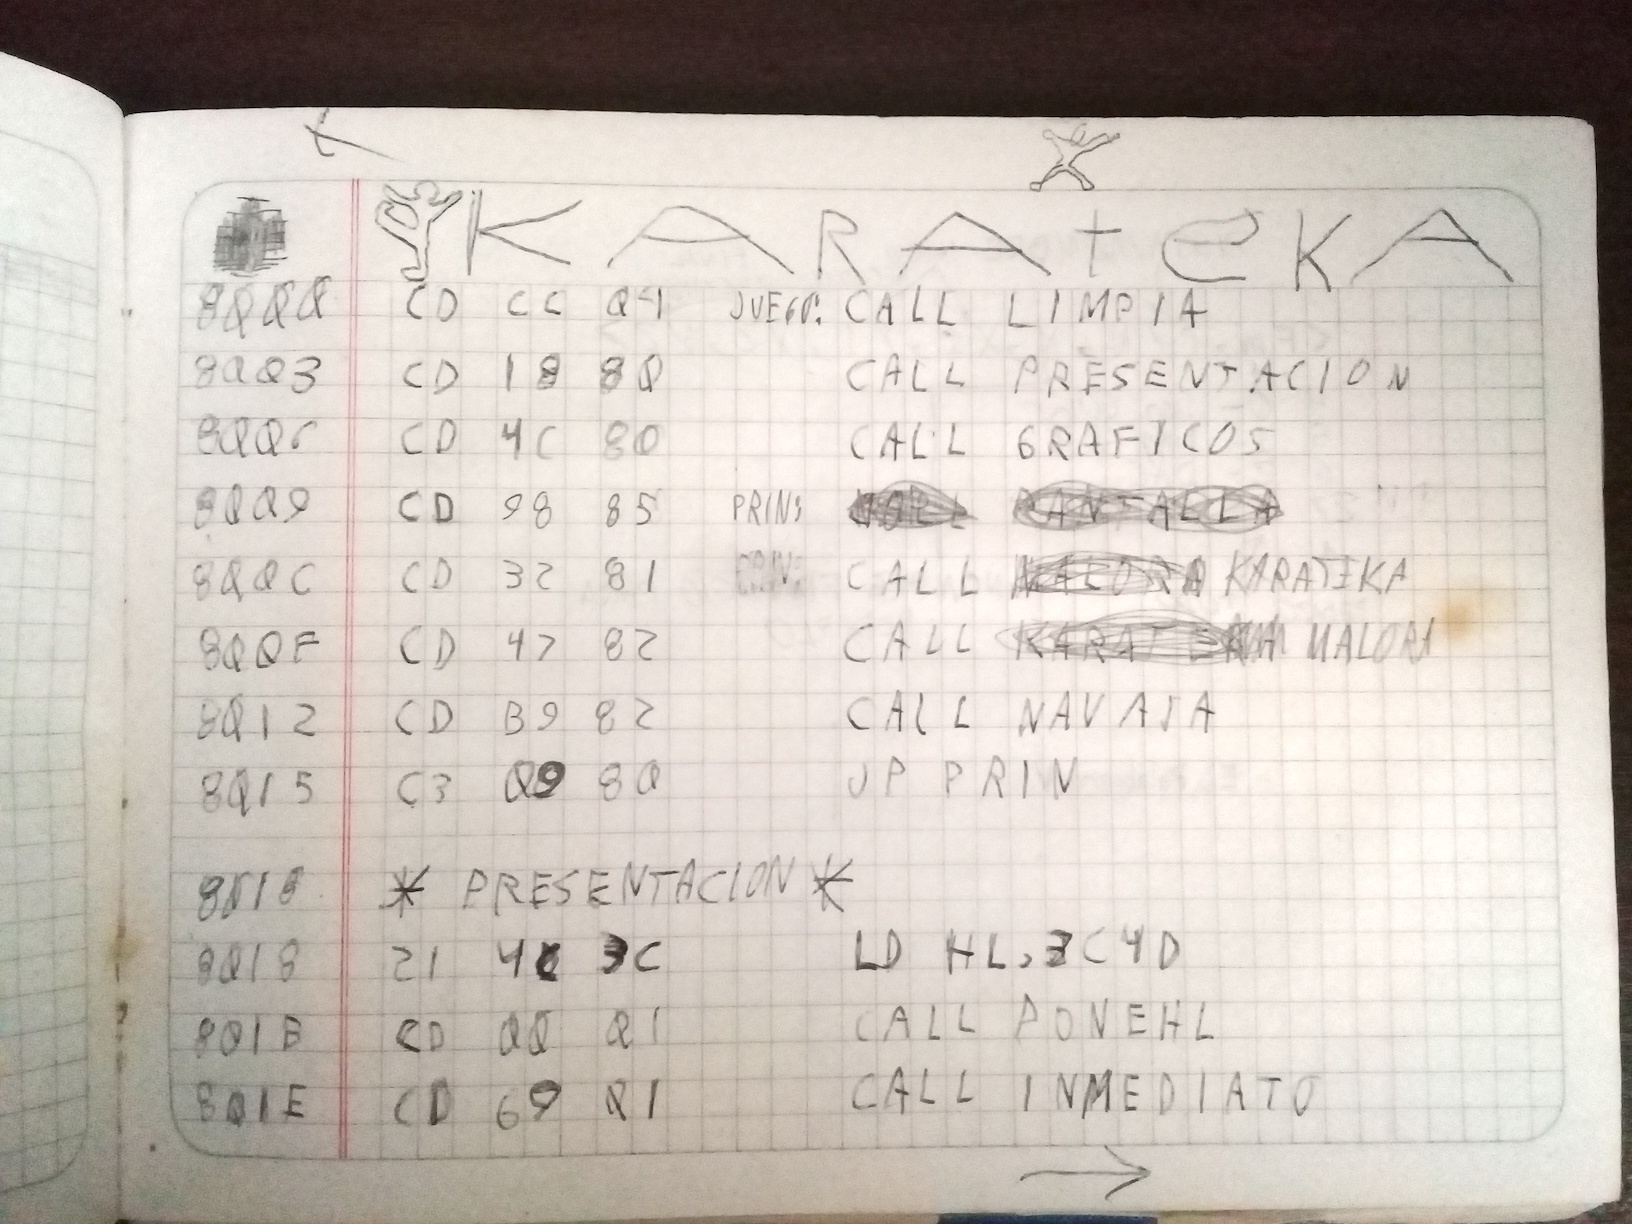 KARATEKA
8000 CD CC 04 JUEGO: CALL LIMPIA
8003 CD 18 80 CALL PRESENTACION
8006 CD 4C 80 CALL GRAFICOS
8009 CD 98 85 PRIN: PANTALLA
800C CD 32 81 CALL KARATEKA
800F CD 47 82 CALL MALORA
8012 CD B9 82 CALL NAVAJA
8015 C3 09 80 JP PRIN
8018 * PRESENTACION *
8018 21 3C LD HL,3C4D
801B CD 00 01 CALL PONEHL
801E CD 69 01 CALL INMEDIATO